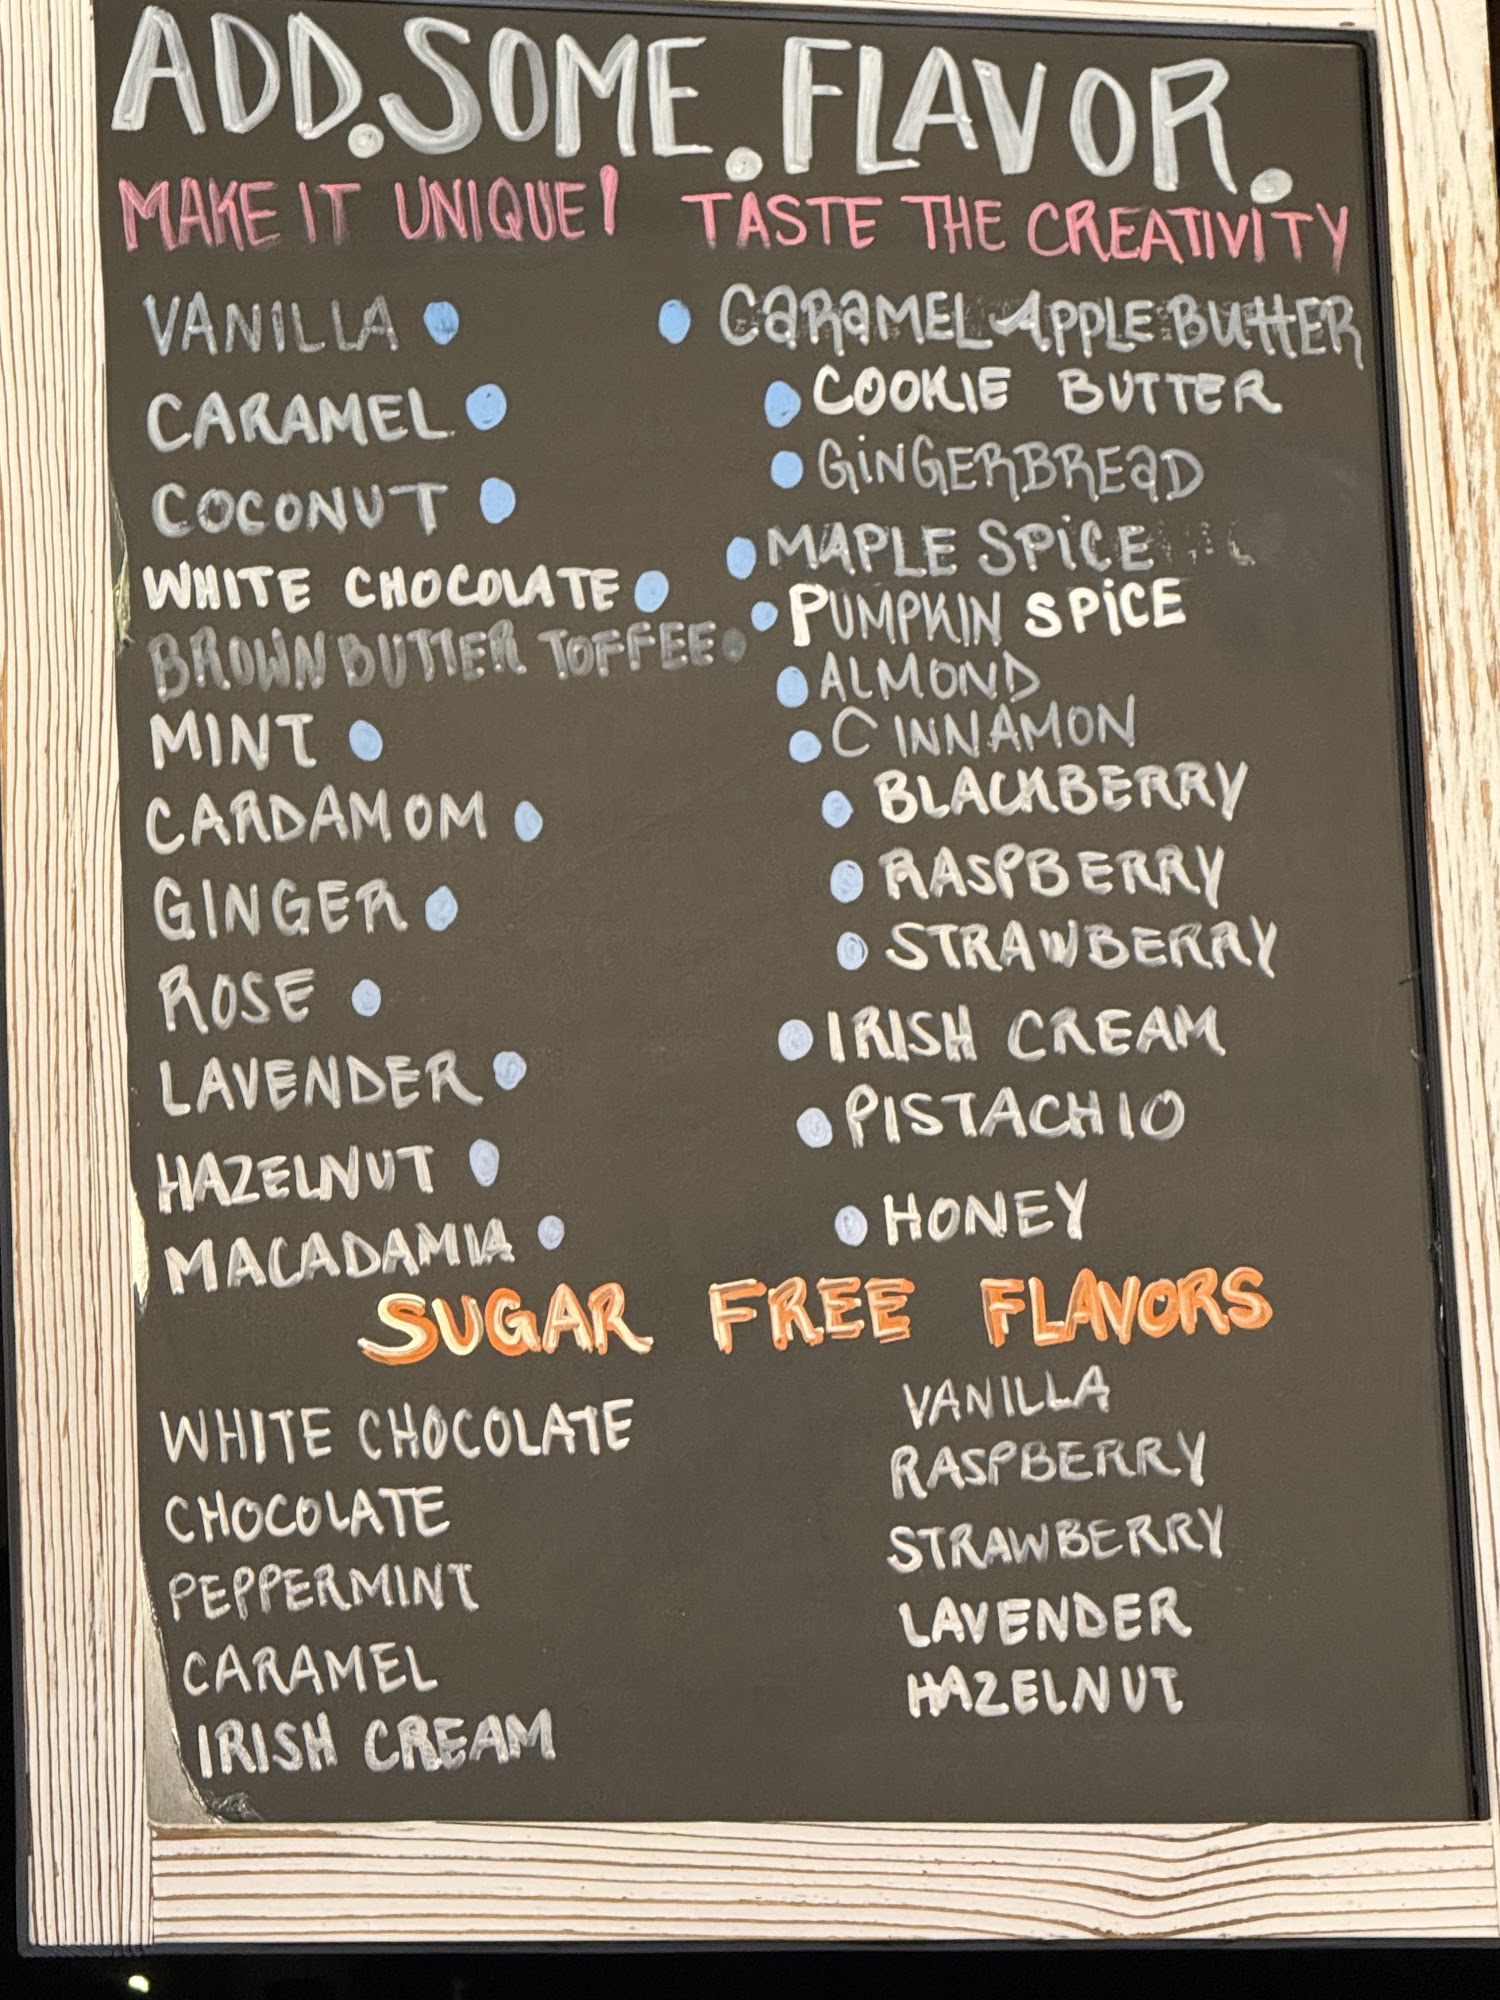 ADD.SOME.FLAVOR.
MAKE IT UNIQUE! TASTE THE CREATIVITY
VANILLA
CARAMEL
COCONUT
WHITE CHOCOLATE
BROWN BUTTER TOFFEE
MINT
CARDAMOM
GINGER
ROSE
LAVENDER
HAZELNUT
MACADAMIA
CARAMEL APPLE BUTTER
COOKIE BUTTER
GINGERBREAD
MAPLE SPICE
PUMPKIN SPICE
ALMOND
CINNAMON
BLACKBERRY
RASPBERRY
STRAWBERRY
IRISH CREAM
PISTACHIO
HONEY
SUGAR FREE FLAVORS
WHITE CHOCOLATE
CHOCOLATE
PEPPERMINT
CARAMEL
IRISH CREAM
VANILLA
RASPBERRY
STRAWBERRY
LAVENDER
HAZELNUT